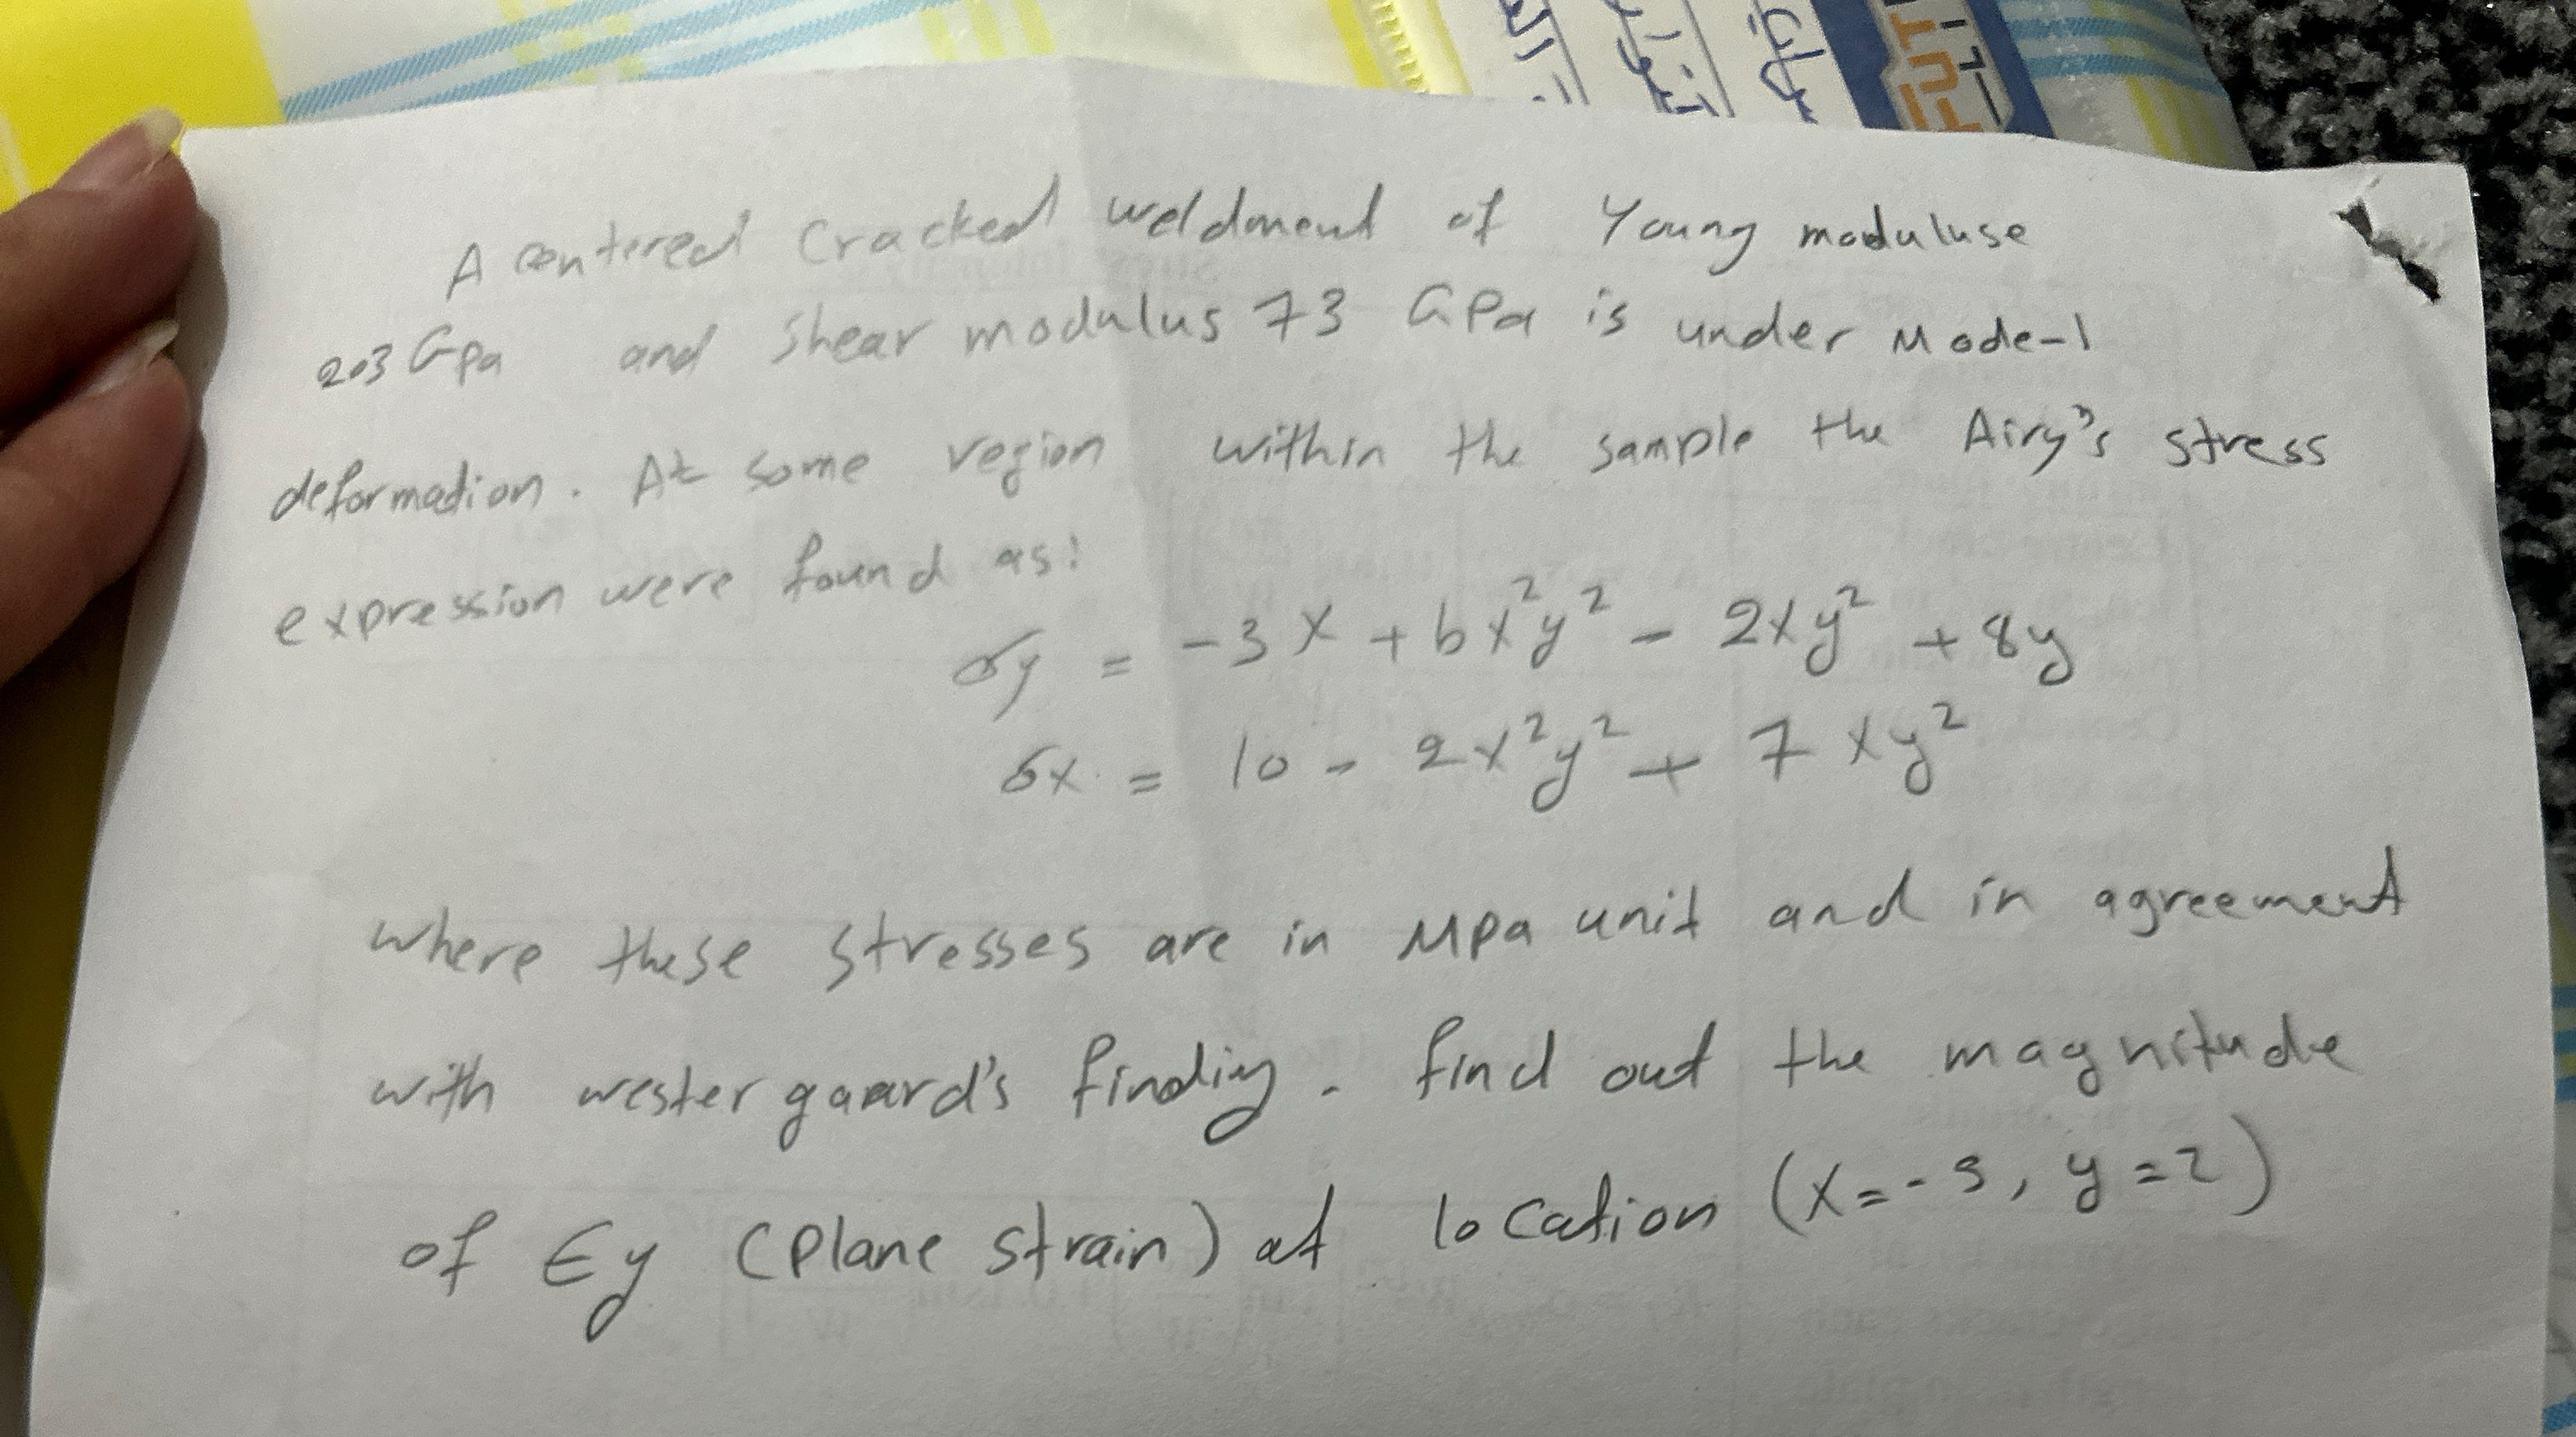 FUT
A centered cracked weldment of Young moduluse
203 Gpa and shear modulus 73 GPa is under Mode-1
deformation. At some region within the sample the Airy's stress
expression were found as:
σy = -3x + 6x²y² - 2xy² + 8y
σx = 10 - 2x²y² + 7xy²
where these stresses are in MPa unit and in agreement
with westergaard's finding. find out the magnitude
of Ey (plane strain) at location (x=-3, y=2)